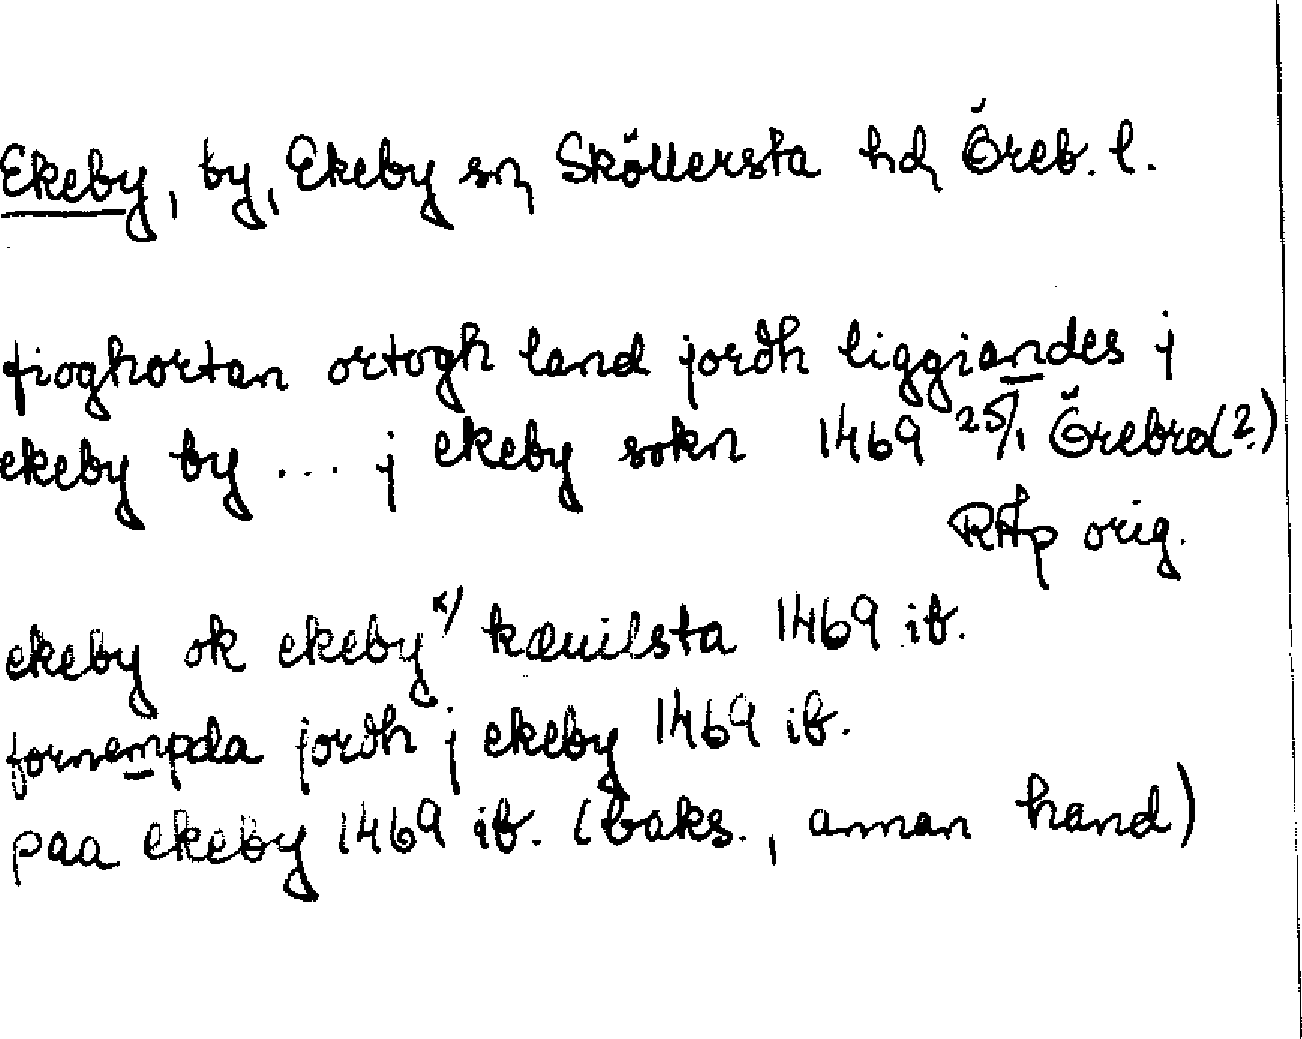 Ekeby, by, Ekeby sn, Sköllersta hd, Öreb. l.
fioghortan ortogh land jordh liggiandes j
ekeby by ... j ekeby sokn 1469 25/1 Örebro(?)
RAp orig.
ekeby ok ekeby x) kæuilsta 1469 ib.
fornempda jordh j ekeby 1469 ib.
paa ekeby 1469 ib. (baks., annan hand)